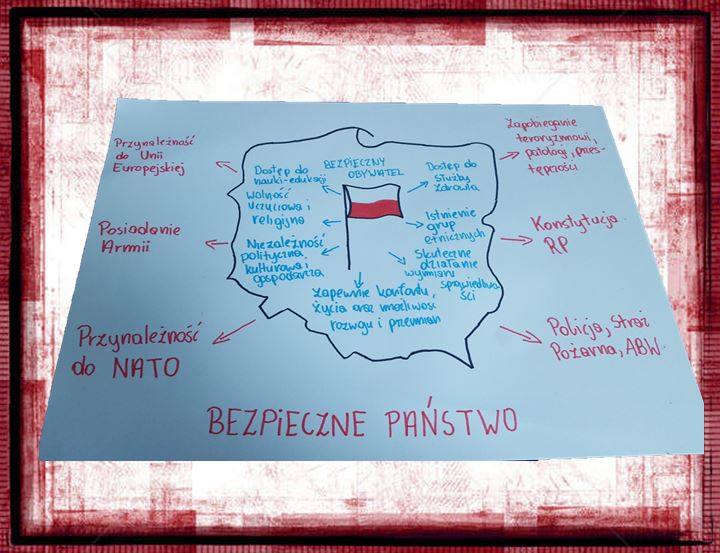 Przynależność
do Unii
Europejskiej
Posiadanie
Armii
Przynależność
do NATO
BEZPIECZNY
OBYWATEL
Dostęp do
nauki-edukacji
Wolność
uczuciowa i
religijna
Niezależność
polityczna,
kulturowa i
gospodarcza
Dostęp do
służby
zdrowia
Istnienie
grup
etnicznych
Skuteczne
działanie
wymiaru
sprawiedliwo
ści
Zapewnie komfortu,
życia oraz możliwość
rozwoju i przemian
Zapobieganie
terroryzmowi,
patologi, przes-
tępczości
Konstytucja
RP
Policja, Straż
Pożarna, ABW
BEZPIECZNE PAŃSTWO